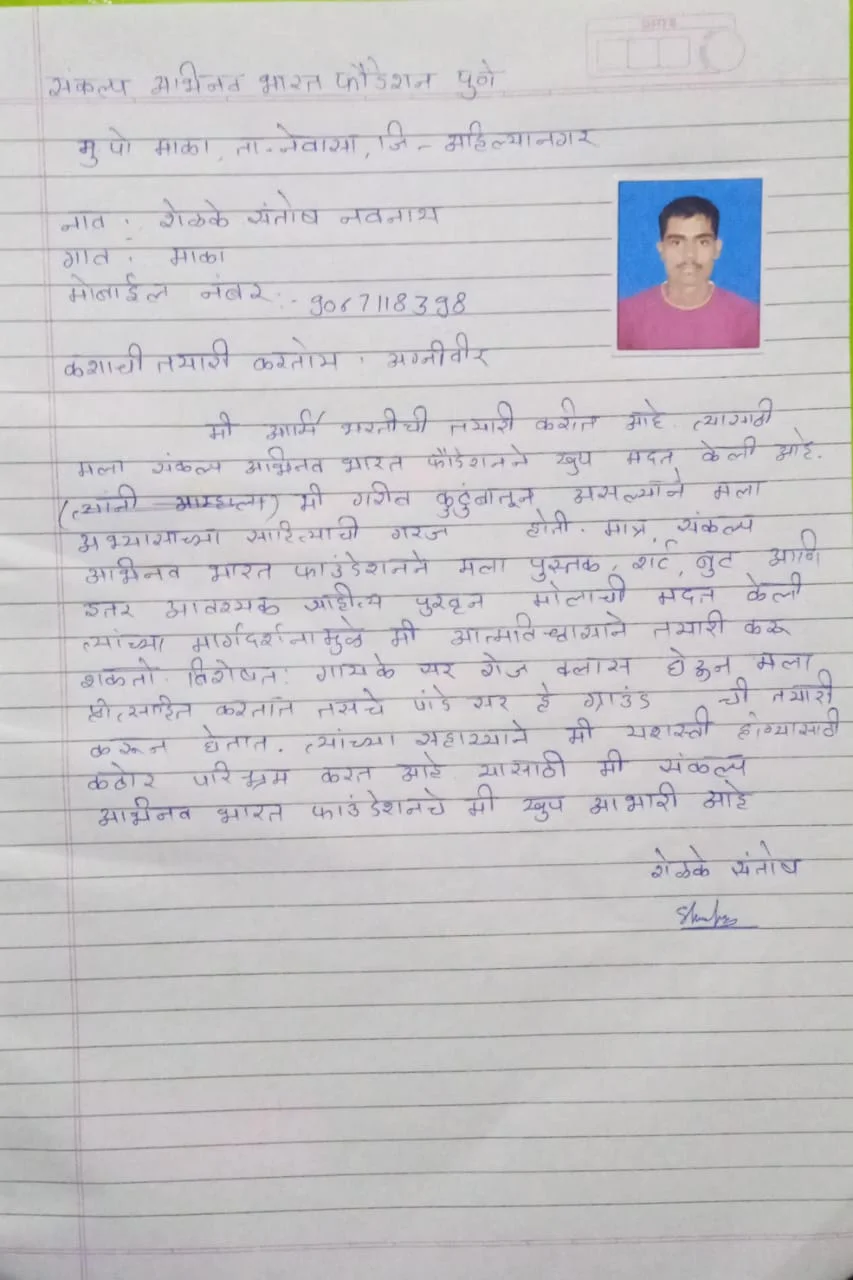 संकल्प अभिनव भारत फौंडेशन पुणे
मु पो माका, ता-नेवासा, जि - अहिल्यानगर
नाव : शेळके संतोष नवनाथ
गाव : माका
मोबाईल नंबर :-
कशाची तयारी करतोय : अग्नीवीर
मी आर्मि भरतीची तयारी करीत आहे. त्यासाठी
मला संकल्प अभिनव भारत फौंडेशनने खुप मदत केली आहे.
(त्यांनी आम्हाला) मी गरीब कुटुंबातून असल्याने मला
अभ्यासाच्या साहित्याची गरज होती. मात्र, संकल्प
अभिनव भारत फाउंडेशनने मला पुस्तक, शर्ट, बुट आणि
इतर आवश्यक साहीत्य पुरवून मोलाची मदत केली
त्यांच्या मार्गदर्शनामुळे मी आत्मविश्वासाने तयारी करू
शकतो. विशेषत: गायके सर रोज क्लास घेऊन मला
प्रोत्साहित करतात तसचे पांडे सर हे ग्राउंड ची तयारी
करून घेतात. त्यांच्या सहाय्याने मी यशस्वी होण्यासाठी
कठोर परिश्रम करत आहे. यासाठी मी संकल्प
अभिनव भारत फाउंडेशनचे मी खुप आभारी आहे
शेळके संतोष